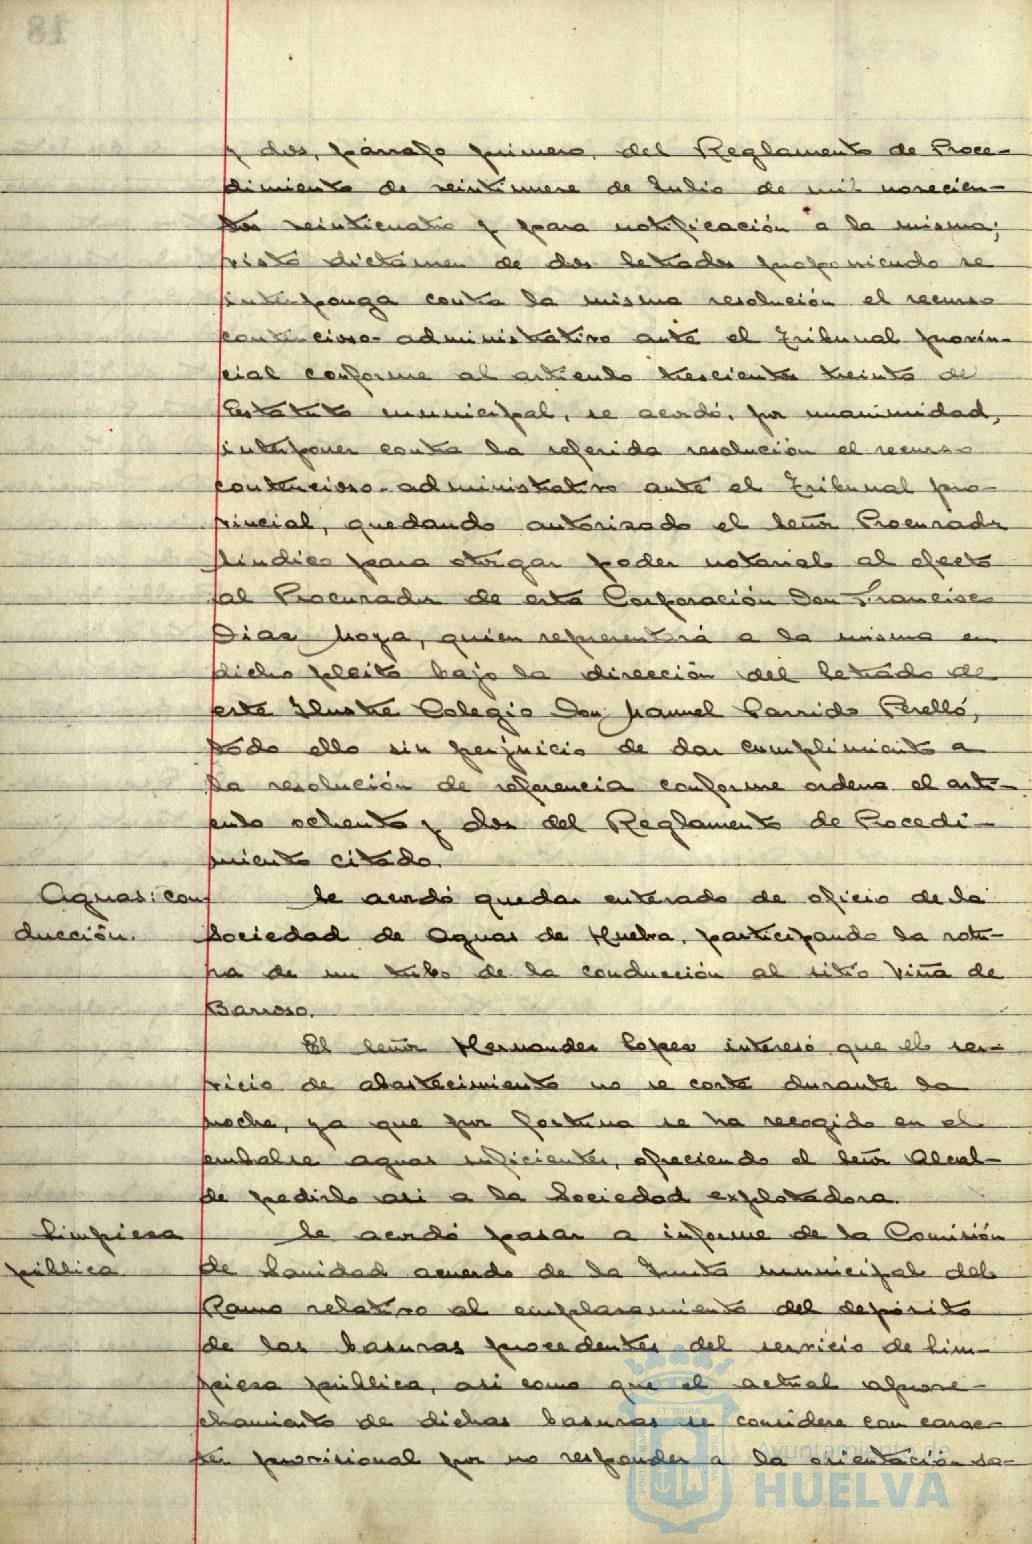 y dos, párrafo primero, del Reglamento de Proce-
dimiento de veintinueve de Julio de mil novecien-
tos veinticuatro y para notificación a la misma;
visto dictámen de dos letrados proponiendo se
interponga contra la misma resolución el recurso
contencioso-administrativo ante el Tribunal provin-
cial conforme al artículo trescientos treinta de
Estatuto municipal, se acordó, por unanimidad,
interponer contra la referida resolución el recurso
contencioso-administrativo ante el Tribunal pro-
vincial, quedando autorizado el Señor Procurador
Síndico para otorgar poder notarial al efecto
al Procurador de esta Corporación Don Francisco
Diaz Moya, quien representará a la misma en
dicho pleito bajo la dirección del Letrado de
este Ilustre Colegio Don Manuel Garrido Perelló,
todo ello sin perjuicio de dar cumplimiento a
la resolución de referencia conforme ordena el artí-
culo ochenta y dos del Reglamento de Procedi-
miento citado.
Aguas: con-
ducción.
Se acordó quedar enterado de oficio de la
Sociedad de Aguas de Huelva, participando la rotu-
ra de un tubo de la conducción al sitio Viña de
Barroso.
El Señor Hernandez Lopez interesó que el ser-
vicio de abastecimiento no se corte durante la
noche, ya que por fortuna se ha recogido en el
embalse aguas suficientes, ofreciendo el Señor Alcal-
de pedirlo asi a la Sociedad explotadora.
Limpieza
pública
Se acordó pasar a informe de la Comisión
de Sanidad acuerdo de la Junta municipal del
Ramo relativo al emplazamiento del depósito
de las basuras procedentes del servicio de Lim-
pieza pública, asi como que el actual aprove-
chamiento de dichas basuras se considere con carac-
ter provisional por no responder a la orientación sa-
Ayuntamiento de
HUELVA